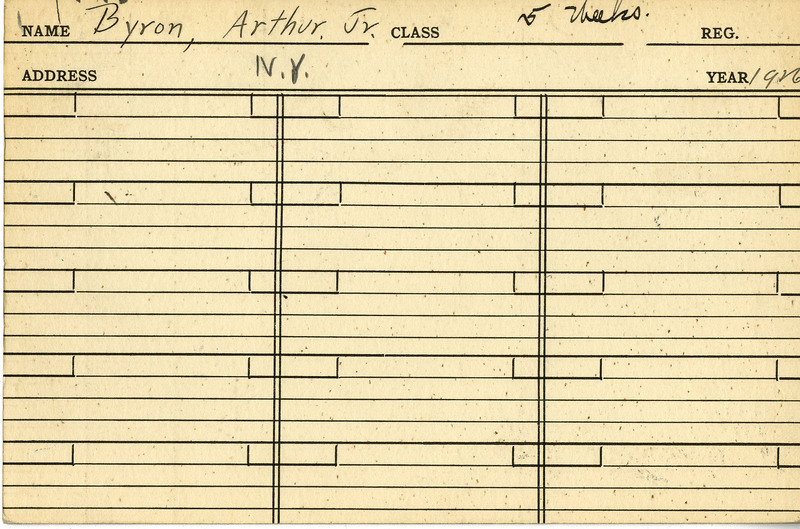 NAME Byron, Arthur Jr. CLASS 5 Weeks. REG.
ADDRESS N.Y. YEAR 1926